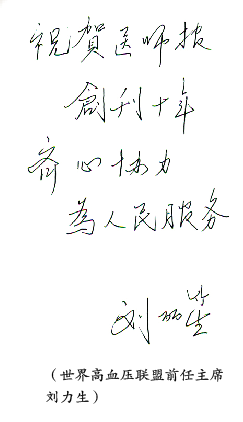 祝賀医师报
創刊十年
齐心协力
為人民服务
刘力生
（世界高血压联盟前任主席
刘力生）